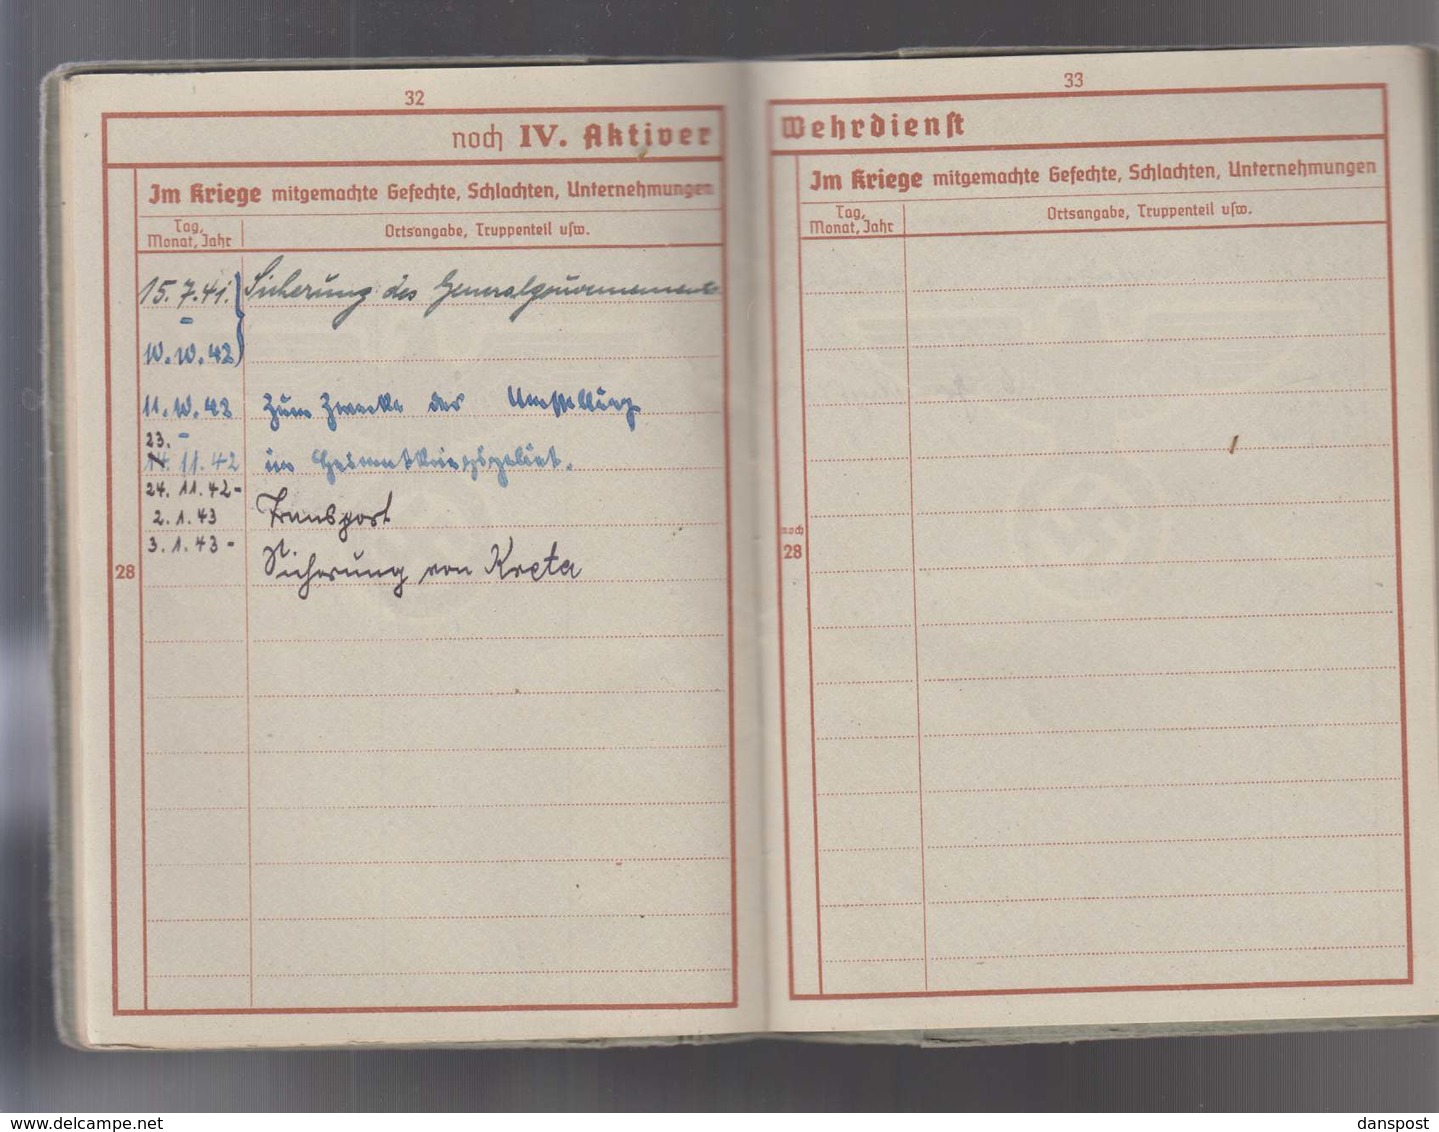 32
noch IV. Aktiver
Im Kriege mitgemachte Gefechte, Schlachten, Unternehmungen
Tag,
Monat, Jahr
Ortsangabe, Truppenteil usw.
15.7.41. Sicherung des Generalgouvernements
–
10.10.42
11.10.42 Zum Zwecke der Umstellung
23. –
14 11.42 im Heimatkriegsgebiet.
24.11.42-
2.1.43 Transport
3.1.43-
Sicherung von Kreta
28
33
Wehrdienst
Im Kriege mitgemachte Gefechte, Schlachten, Unternehmungen
Tag,
Monat, Jahr
Ortsangabe, Truppenteil usw.
noch
28
www.delcampe.net
danspost